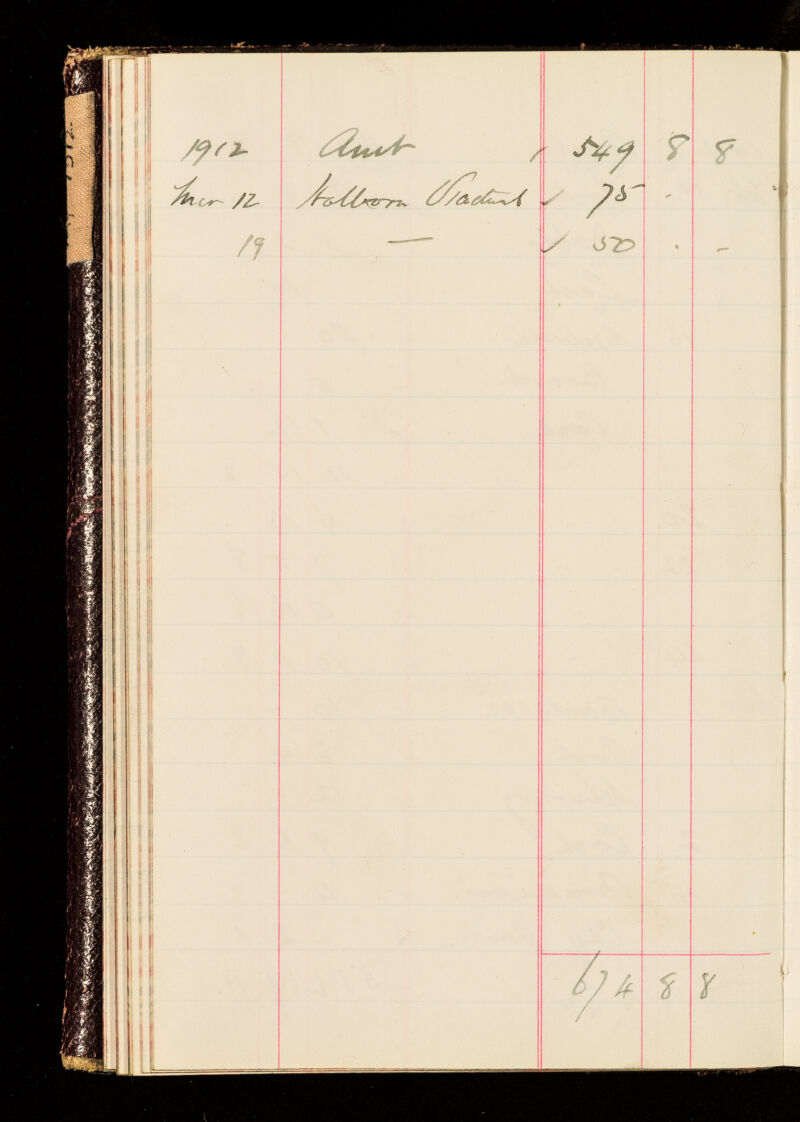 1912 Amt / 549 8 8
Mar 12 Holborn Viaduct ✓ 75 -
19 — ✓ 50 . -
674 8 8